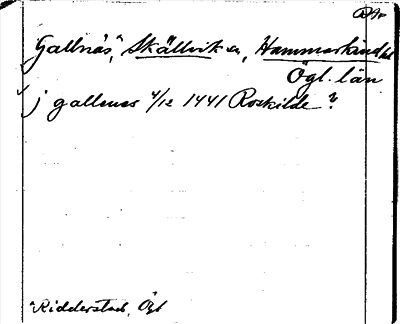 Gallnäs, Skällvik sn, Hammarkinds hd
Ögl. län
j gallenes 4/12 1441 Roskilde ?
Ridderstad, Ögl